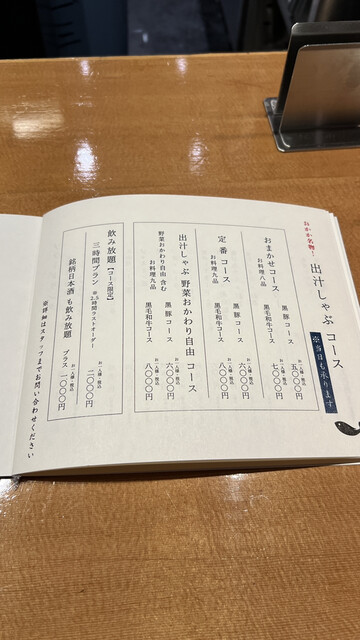 おかか名物！
出汁しゃぶ コース
※当日も承ります
おまかせコース
お料理八品
黒豚コース お一人様・税込 五〇〇〇円
黒毛和牛コース お一人様・税込 七〇〇〇円
定番 コース
お料理九品
黒豚コース お一人様・税込 六〇〇〇円
黒毛和牛コース お一人様・税込 八〇〇〇円
出汁しゃぶ 野菜おかわり自由 コース
野菜おかわり自由 含む
お料理九品
黒豚コース お一人様・税込 六〇〇〇円
黒毛和牛コース お一人様・税込 八〇〇〇円
飲み放題【コース限定】
三時間プラン ※2.5時間ラストオーダー お一人様・税込 二〇〇〇円
銘柄日本酒 も飲み放題 プラス お一人様・税込 一〇〇〇円
※詳細はスタッフまでお問い合わせください